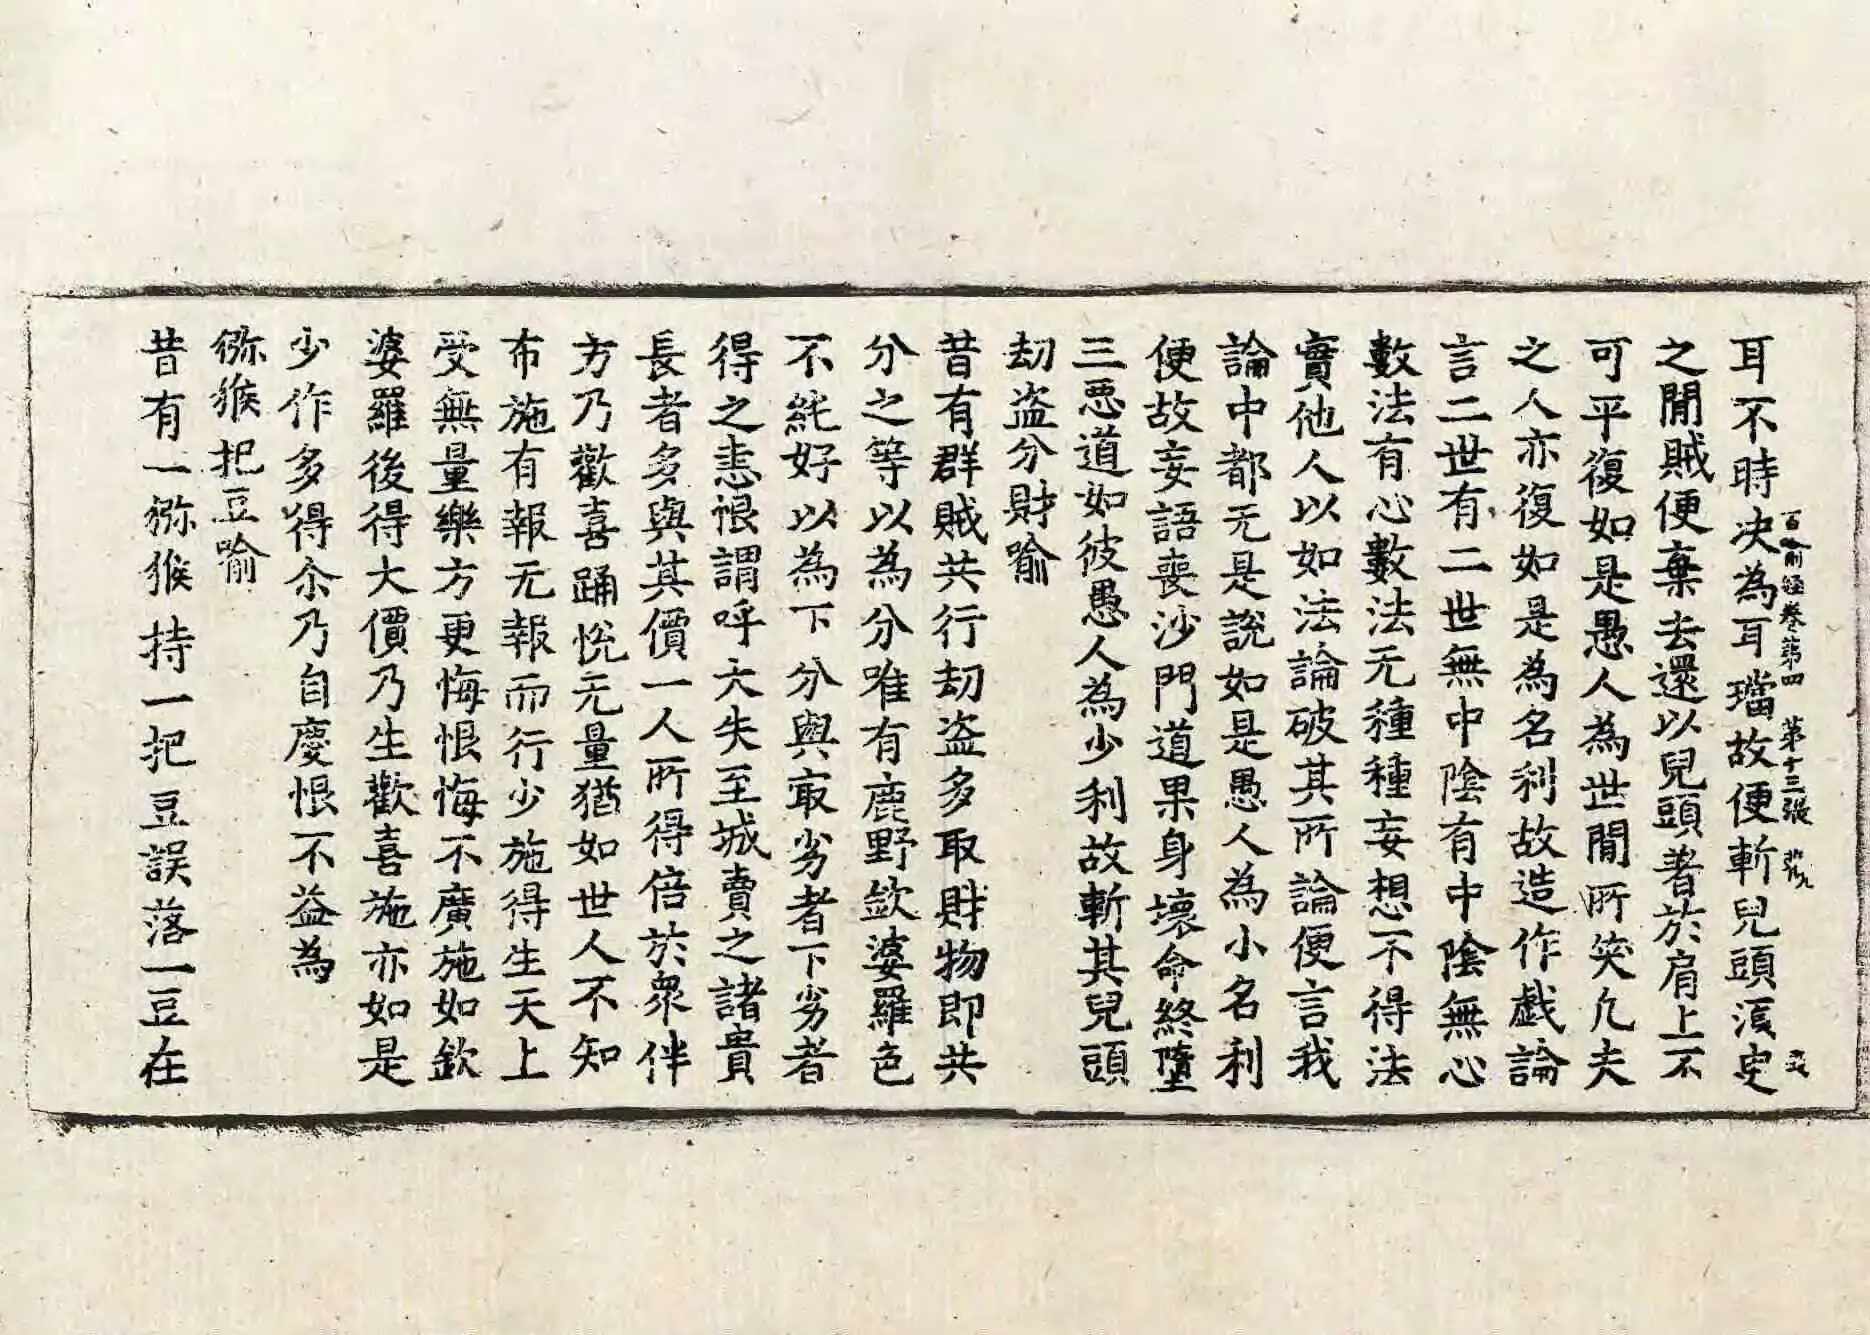 耳不時决為耳璫故便斬兒頭湏臾
百喻經卷第四 第十三張
之閒賊便棄去還以兒頭著於肩上不
可平復如是愚人為世閒所笑凢夫
之人亦復如是為名利故造作戱論
言二世有二世無中陰有中陰無心
數法有心數法无種種妄想不得法
實他人以如法論破其所論便言我
論中都无是說如是愚人為小名利
便故妄語喪沙門道果身壞命終墮
三惡道如彼愚人為少利故斬其兒頭
劫盗分財喻
昔有群賊共行劫盗多取財物即共
分之等以為分唯有鹿野欽婆羅色
不純好以為下分與㝡劣者下劣者
得之恚恨謂呼大失至城賣之諸貴
長者多與其價一人所得倍於衆伴
方乃歡喜踊悅无量猶如世人不知
布施有報无報而行少施得生天上
受無量樂方更悔恨悔不廣施如欽
婆羅後得大價乃生歡喜施亦如是
少作多得尒乃自慶恨不益為
獼猴把豆喻
昔有一獼猴持一把豆誤落一豆在